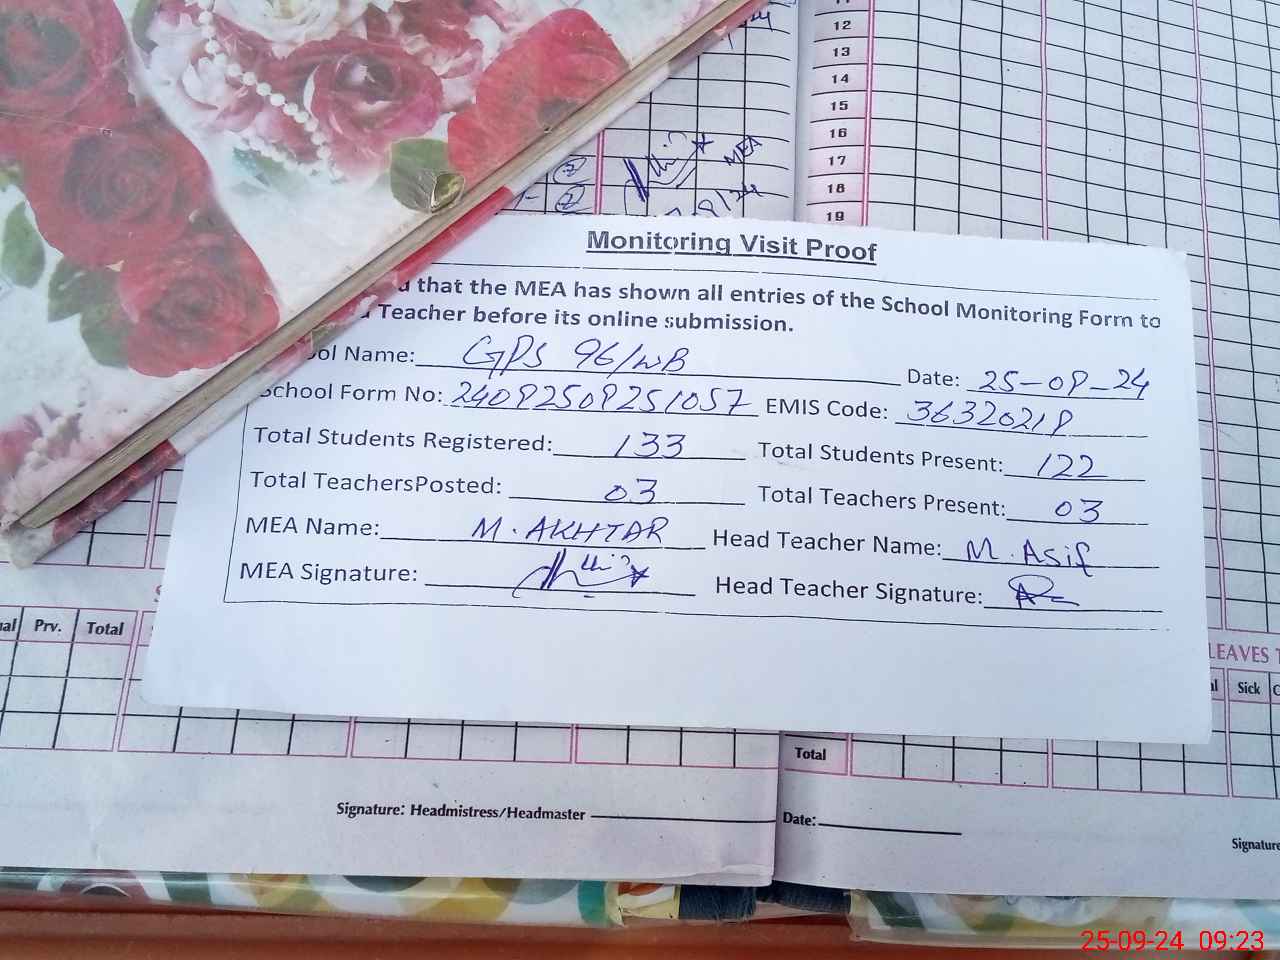 12
13
14
15
16
17
18
19
MEA
Monitoring Visit Proof
that the MEA has shown all entries of the School Monitoring Form to
Teacher before its online submission.
School Name: GPS 96/WB Date: 25-09-24
School Form No: 24092509251057 EMIS Code: 36320219
Total Students Registered: 133 Total Students Present: 122
Total TeachersPosted: 03 Total Teachers Present: 03
MEA Name: M. AKHTAR Head Teacher Name: M. Asif
MEA Signature: Head Teacher Signature:
Prv. Total
LEAVES
Sick
Total
Signature: Headmistress/Headmaster
Date:
Signature
25-09-24 09:23